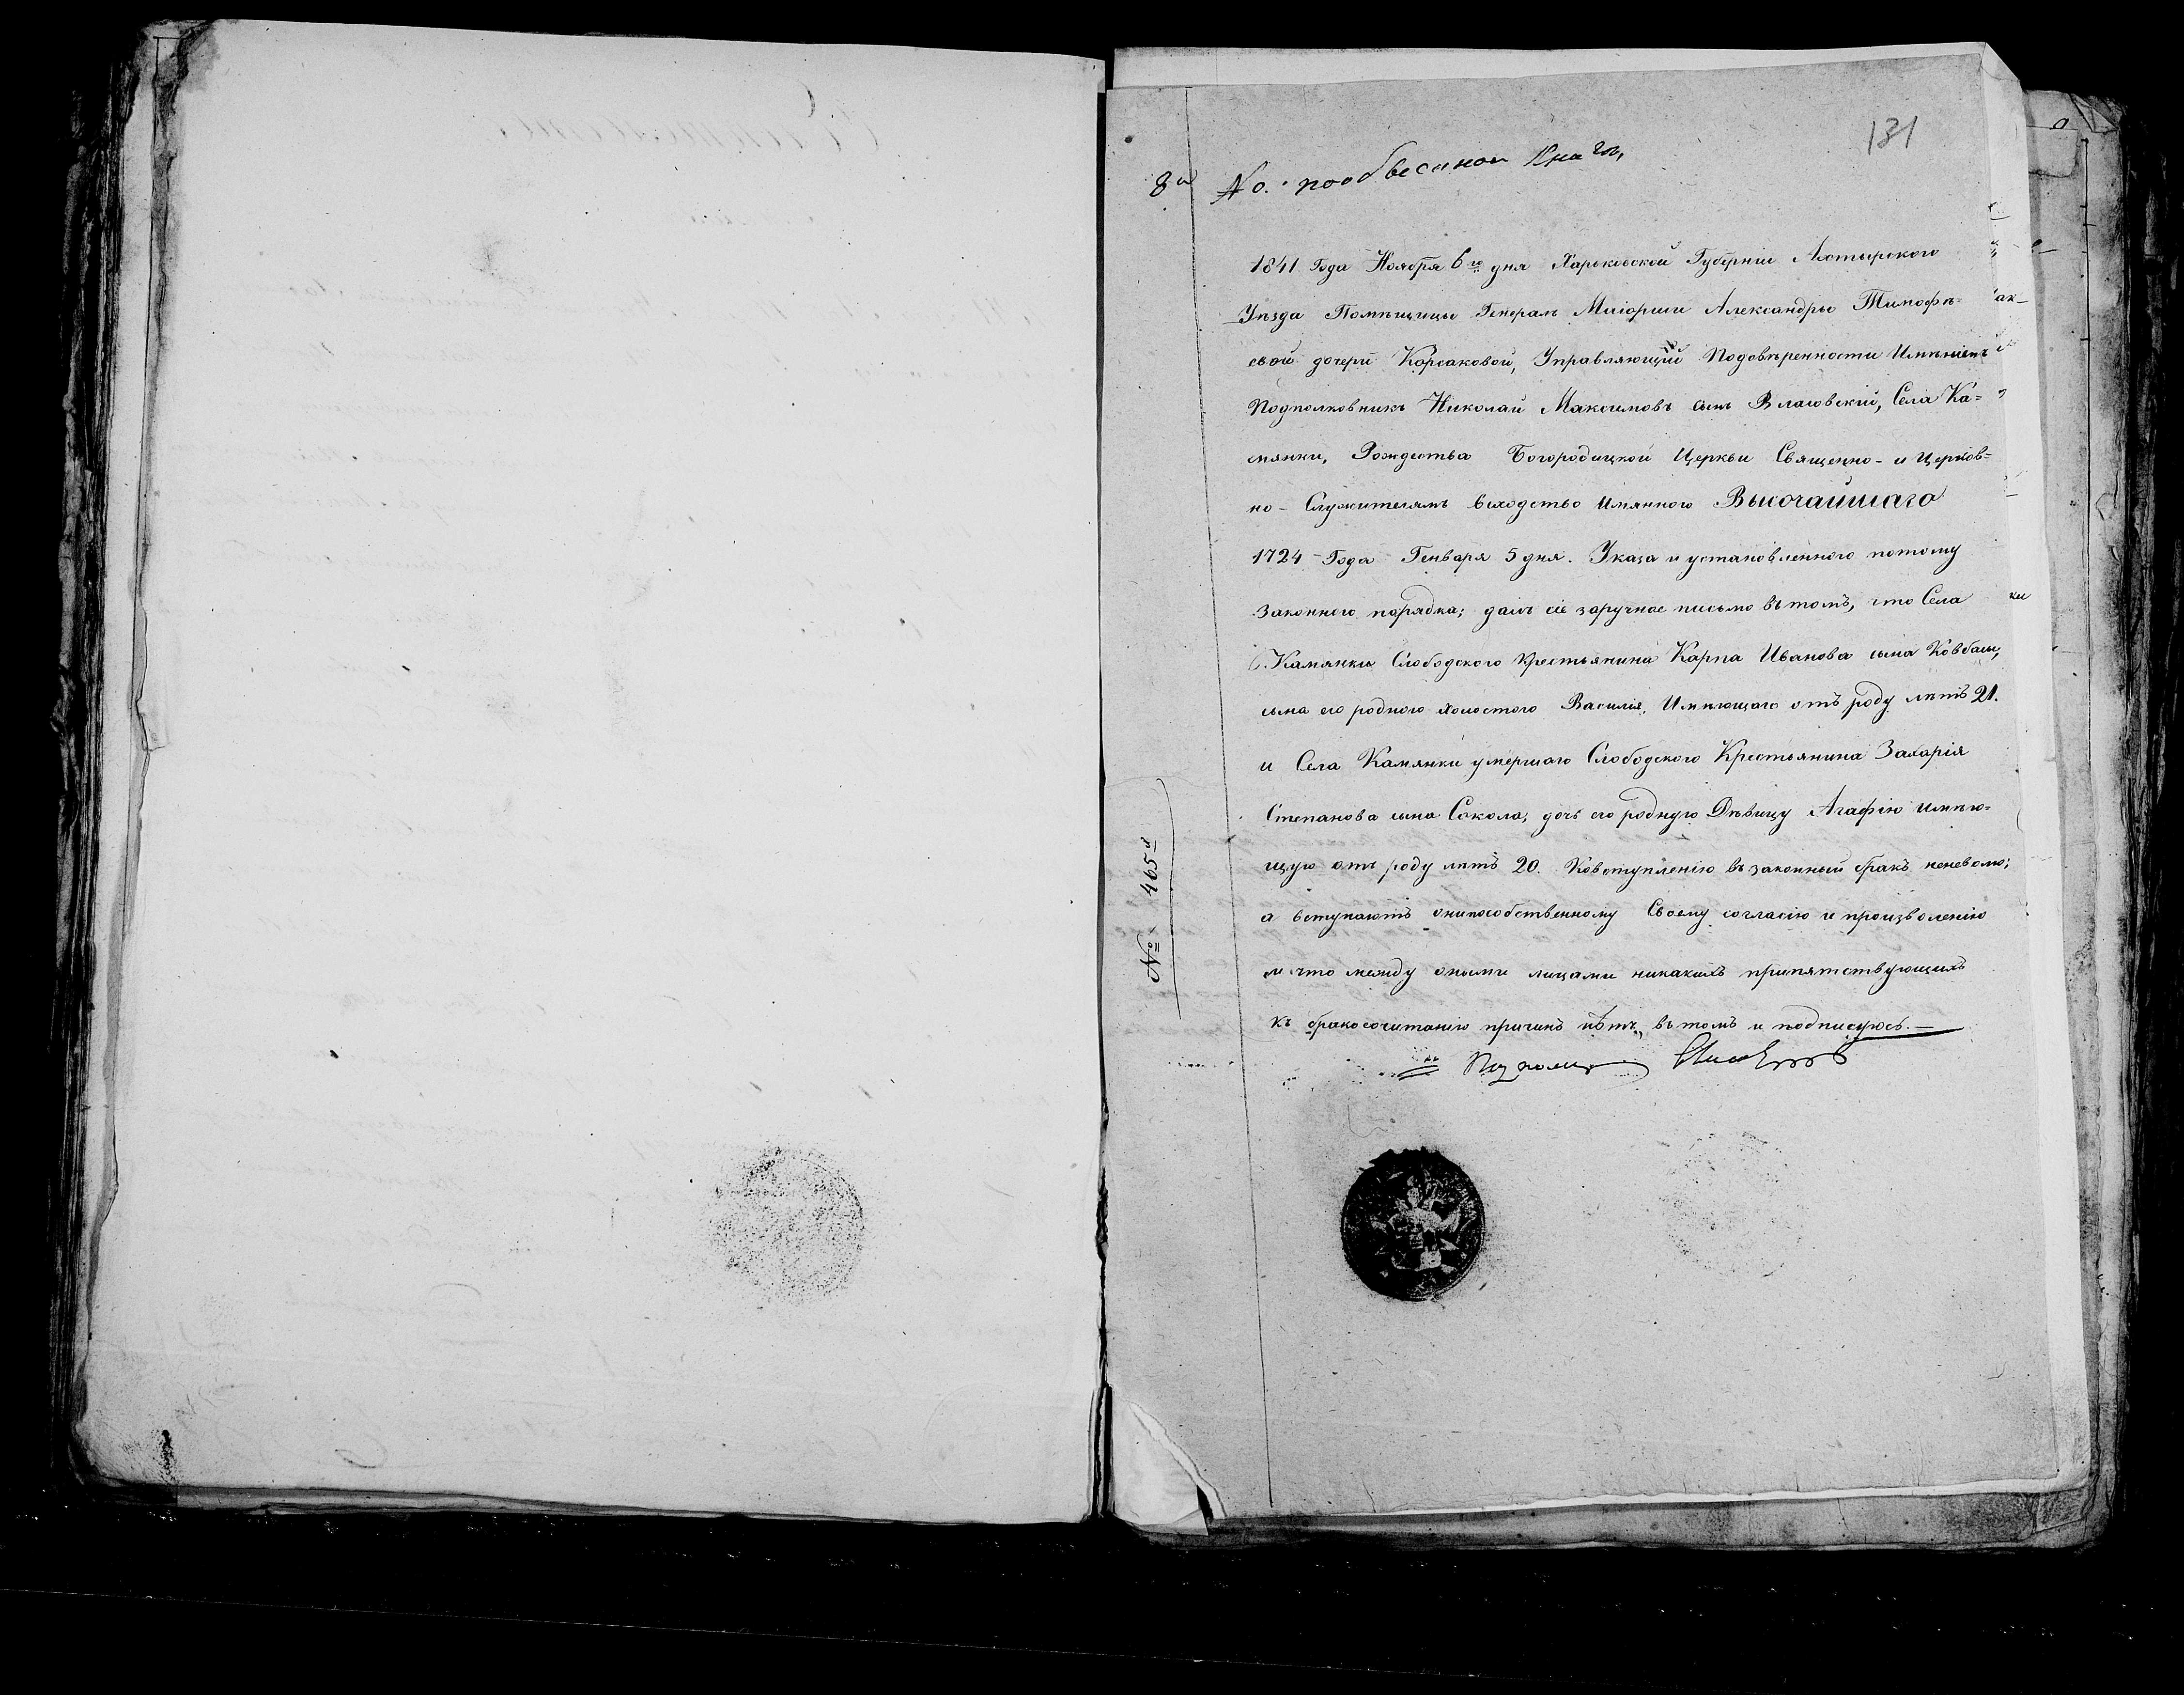 131
8й No. пообыскной книги,
1841 Года Ноября 6го дня Харьковской Губерніи Ахтырского
Уѣзда Помѣщицы Генералъ Маіорши Александры Тимофѣ=
евой дочери Корсаковой, Управляющій Подовѣренности Имѣніемъ
Подполковникъ Николай Максимовъ сынъ Власовскій, Села Ка=
мянки, Рождества Богородицкой Церкви Священно- и Церков=
но- Служителямъ всходство Имянного Высочайшаго
1724 Года Генваря 5 дня. Указа и установленного потому
Законного порядка; далъ сіе заручное письмо въ томъ, что Села
Камянки Слободского крестьянина Карпа Иванова сына Ковбасы,
сына его родного холостого Василія, Имѣющаго отъ роду лѣтъ 21.
и Села Камянки умершаго Слободского Крестьянина Захарія
Степанова сына Сокола, дочь его родную Дѣвицу Агафію имѣю=
щую отъ роду лѣтъ 20. Ковступленію въ законный бракъ неневолю;
а вступаютъ онипособственному Своему согласію и произволенію
и что между оными лицами никакихъ припятствующихъ
къ бракосочитанію причинъ нѣтъ, въ томъ и подписуюсь.—
№ 465й